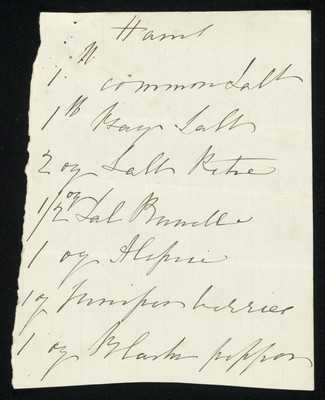 Hams
1 lb common Salt
1 lb Bay Salt
2 oz Salt Petre
1/2 oz Sal Prunelle
1 oz Alspice
1 oz Juniper berries
1 oz Black pepper